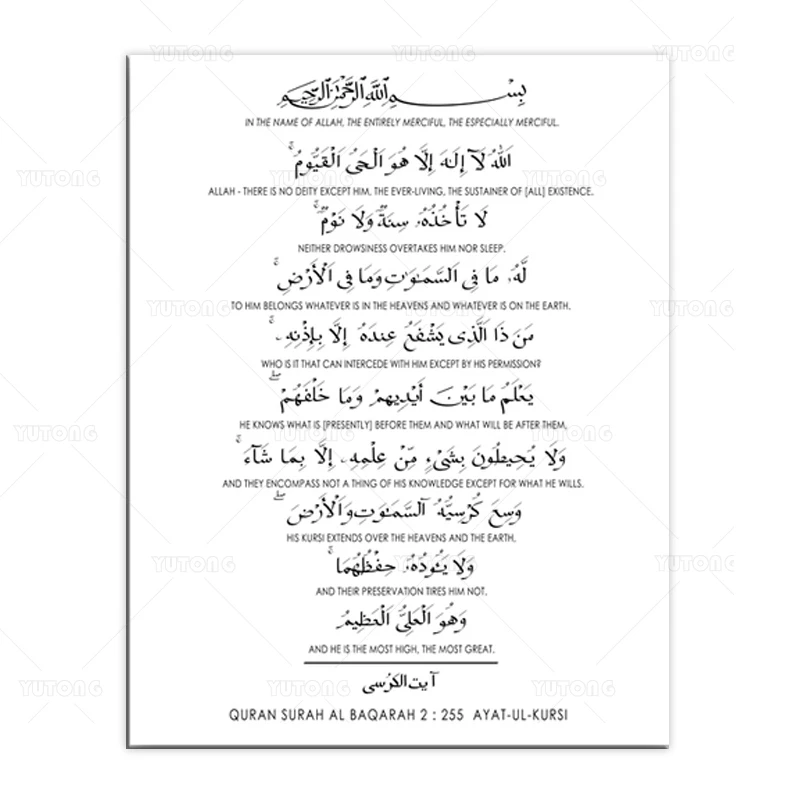 بِسْمِ ٱللَّهِ ٱلرَّحْمَٰنِ ٱلرَّحِيمِ
IN THE NAME OF ALLAH, THE ENTIRELY MERCIFUL, THE ESPECIALLY MERCIFUL.
اللَّهُ لَآ إِلَـٰهَ إِلَّا هُوَ الْحَىُّ الْقَيُّومُ ۚ
ALLAH - THERE IS NO DEITY EXCEPT HIM, THE EVER-LIVING, THE SUSTAINER OF [ALL] EXISTENCE.
لَا تَأْخُذُهُۥ سِنَةٌ وَلَا نَوْمٌ ۚ
NEITHER DROWSINESS OVERTAKES HIM NOR SLEEP.
لَّهُۥ مَا فِى السَّمَـٰوَٰتِ وَمَا فِى الْأَرْضِ ۗ
TO HIM BELONGS WHATEVER IS IN THE HEAVENS AND WHATEVER IS ON THE EARTH.
مَن ذَا الَّذِى يَشْفَعُ عِندَهُۥٓ إِلَّا بِإِذْنِهِۦ ۚ
WHO IS IT THAT CAN INTERCEDE WITH HIM EXCEPT BY HIS PERMISSION?
يَعْلَمُ مَا بَيْنَ أَيْدِيهِمْ وَمَا خَلْفَهُمْ ۖ
HE KNOWS WHAT IS [PRESENTLY] BEFORE THEM AND WHAT WILL BE AFTER THEM,
وَلَا يُحِيطُونَ بِشَىْءٍ مِّنْ عِلْمِهِۦٓ إِلَّا بِمَا شَآءَ ۚ
AND THEY ENCOMPASS NOT A THING OF HIS KNOWLEDGE EXCEPT FOR WHAT HE WILLS.
وَسِعَ كُرْسِيُّهُ السَّمَـٰوَٰتِ وَالْأَرْضَ ۖ
HIS KURSI EXTENDS OVER THE HEAVENS AND THE EARTH,
وَلَا يَـُٔودُهُۥ حِفْظُهُمَا ۚ
AND THEIR PRESERVATION TIRES HIM NOT.
وَهُوَ الْعَلِىُّ الْعَظِيمُ
AND HE IS THE MOST HIGH, THE MOST GREAT.
آیت الکرسی
QURAN SURAH AL BAQARAH 2 : 255 AYAT-UL-KURSI
YUTONG